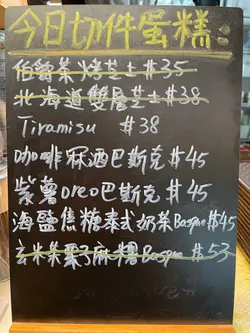 今日切件蛋糕:
伯爵茶烤芝士 $35
北海道雙層芝士 $38
Tiramisu $38
咖啡冧酒巴斯克 $45
紫薯oreo巴斯克 $45
海鹽焦糖泰式奶茶Basque $45
玄米茶栗子麻糬Basque $53